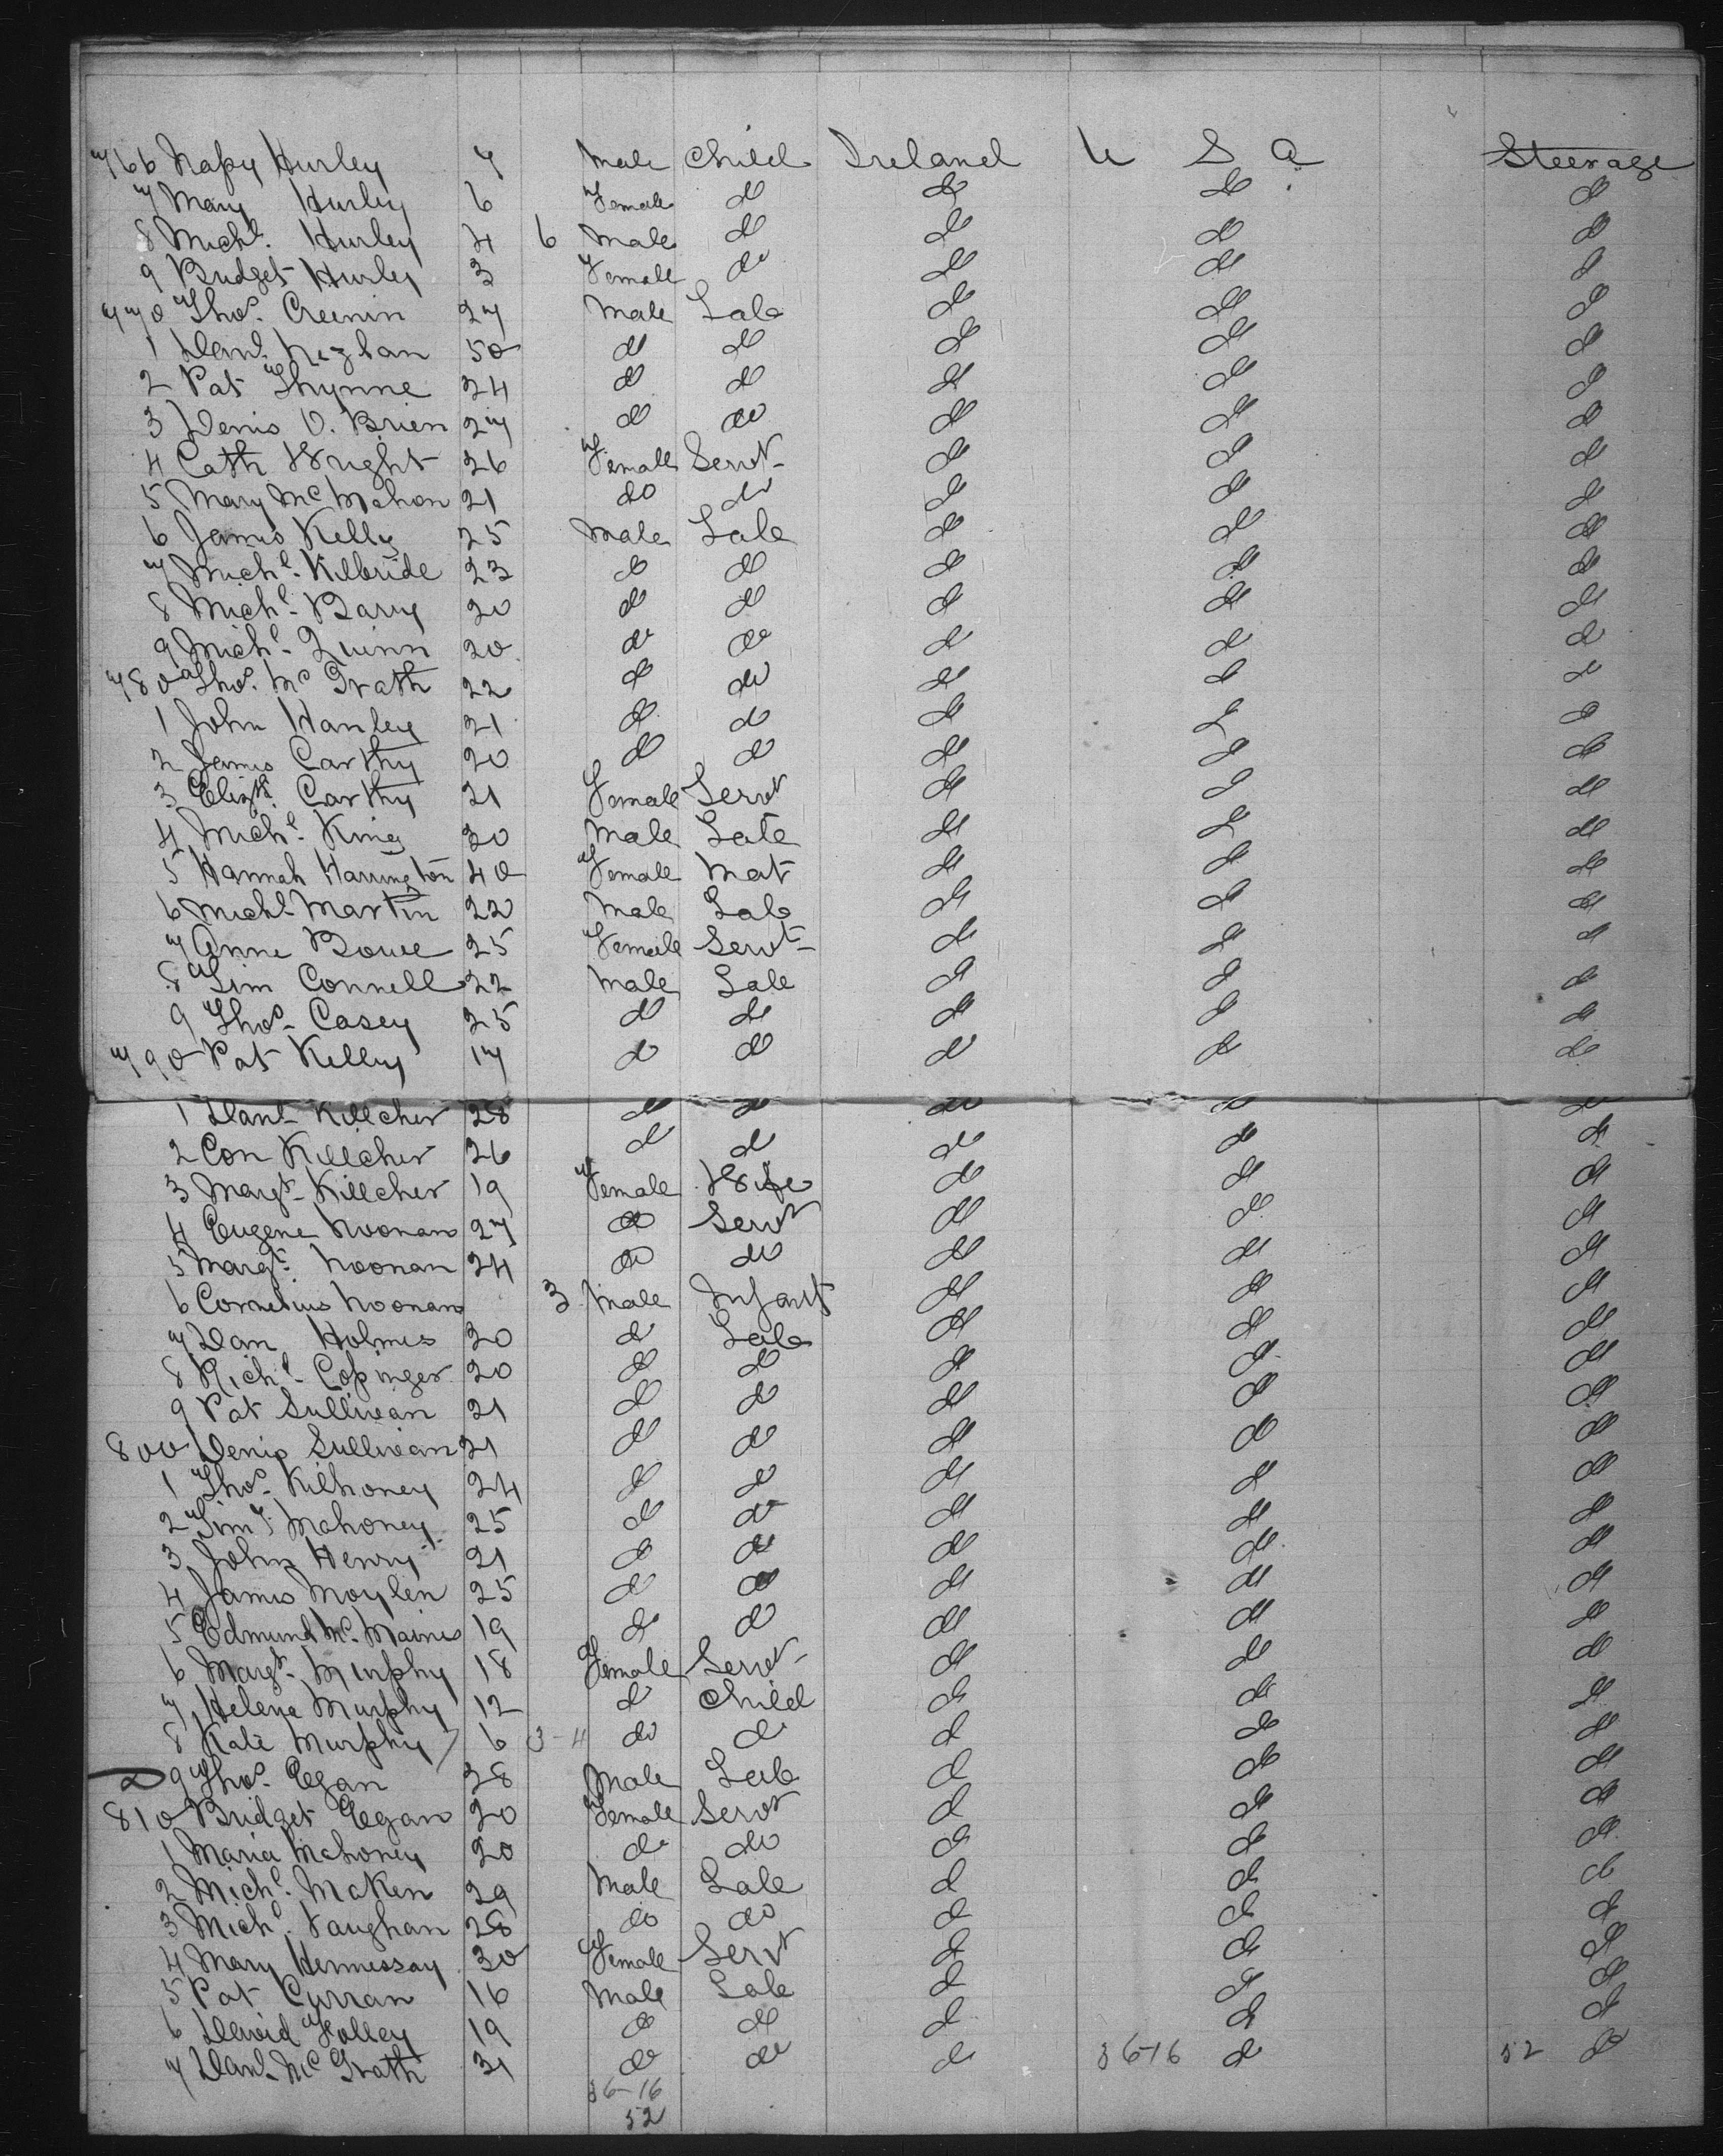 766 Napy Hurley 7 Male Child Ireland U S A Steerage
7 Mary Hurley 6 Female do do do do
8 Michl. Hurley 4 6 Male do do do do
9 Bridget Hurley 3 Female do do do do
770 Thos. Creenin 27 Male Lab do do do
1 Danl. Neghan 50 do do do do do
2 Pat Thynne 24 do do do do do
3 Denis O. Brien 27 do do do do do
4 Cath Wright 26 Female Servt do do do
5 Mary McMahon 21 do do do do do
6 James Kelly 25 Male Lab do do do
7 Michl. Kilbride 23 do do do do do
8 Michl. Barry 20 do do do do do
9 Michl. Quinn 20 do do do do do
780 Thos. McGrath 22 do do do do do
1 John Hanley 21 do do do do do
2 James Carthy 20 do do do do do
3 Elizth. Carthy 21 Female Servt do do do
4 Michl. King 30 Male Lab do do do
5 Hannah Harrington 40 Female Mat do do do
6 Michl. Martin 22 Male Lab do do do
7 Anne Bowe 25 Female Servt do do do
8 Tim Connell 22 Male Lab do do do
9 Thos. Casey 25 do do do do do
790 Pat Kelly 17 do do do do do
1 Danl. Killeher 28 do do do do do
2 Con Killeher 26 do do do do do
3 Margt. Killeher 19 Female Wife do do do
4 Eugene Noonan 27 do Servt do do do
5 Margt. Noonan 24 do do do do do
6 Cornelius Noonan 3 Male Infant do do do
7 Dan Holmes 20 do Lab do do do
8 Richd. Copinger 20 do do do do do
9 Pat Sullivan 21 do do do do do
800 Denis Sullivan 21 do do do do do
1 Thos. Kilhoney 24 do do do do do
2 Timy. Mahoney 25 do do do do do
3 John Henry 21 do do do do do
4 James Moylen 25 do do do do do
5 Edmund Mc. Mainis 19 do do do do do
6 Margt. Murphy 18 Female Servt do do do
7 Helena Murphy 12 do Child do do do
8 Kate Murphy 6 3-4 do do do do do
9 Thos. Egan 28 Male Lab do do do
810 Bridget Egan 20 Female Servt do do do
1 Maria Mahoney 20 do do do do do
2 Michl. McKen 29 Male Lab do do do
3 Michl. Vaughan 28 do do do do do
4 Mary Hennessay 30 Female Servt do do do
5 Pat Curran 16 Male Lab do do do
6 David Folley 19 do do do do do
7 Danl. McGrath 31 do do do 36-16 do 52 do
36-16
52